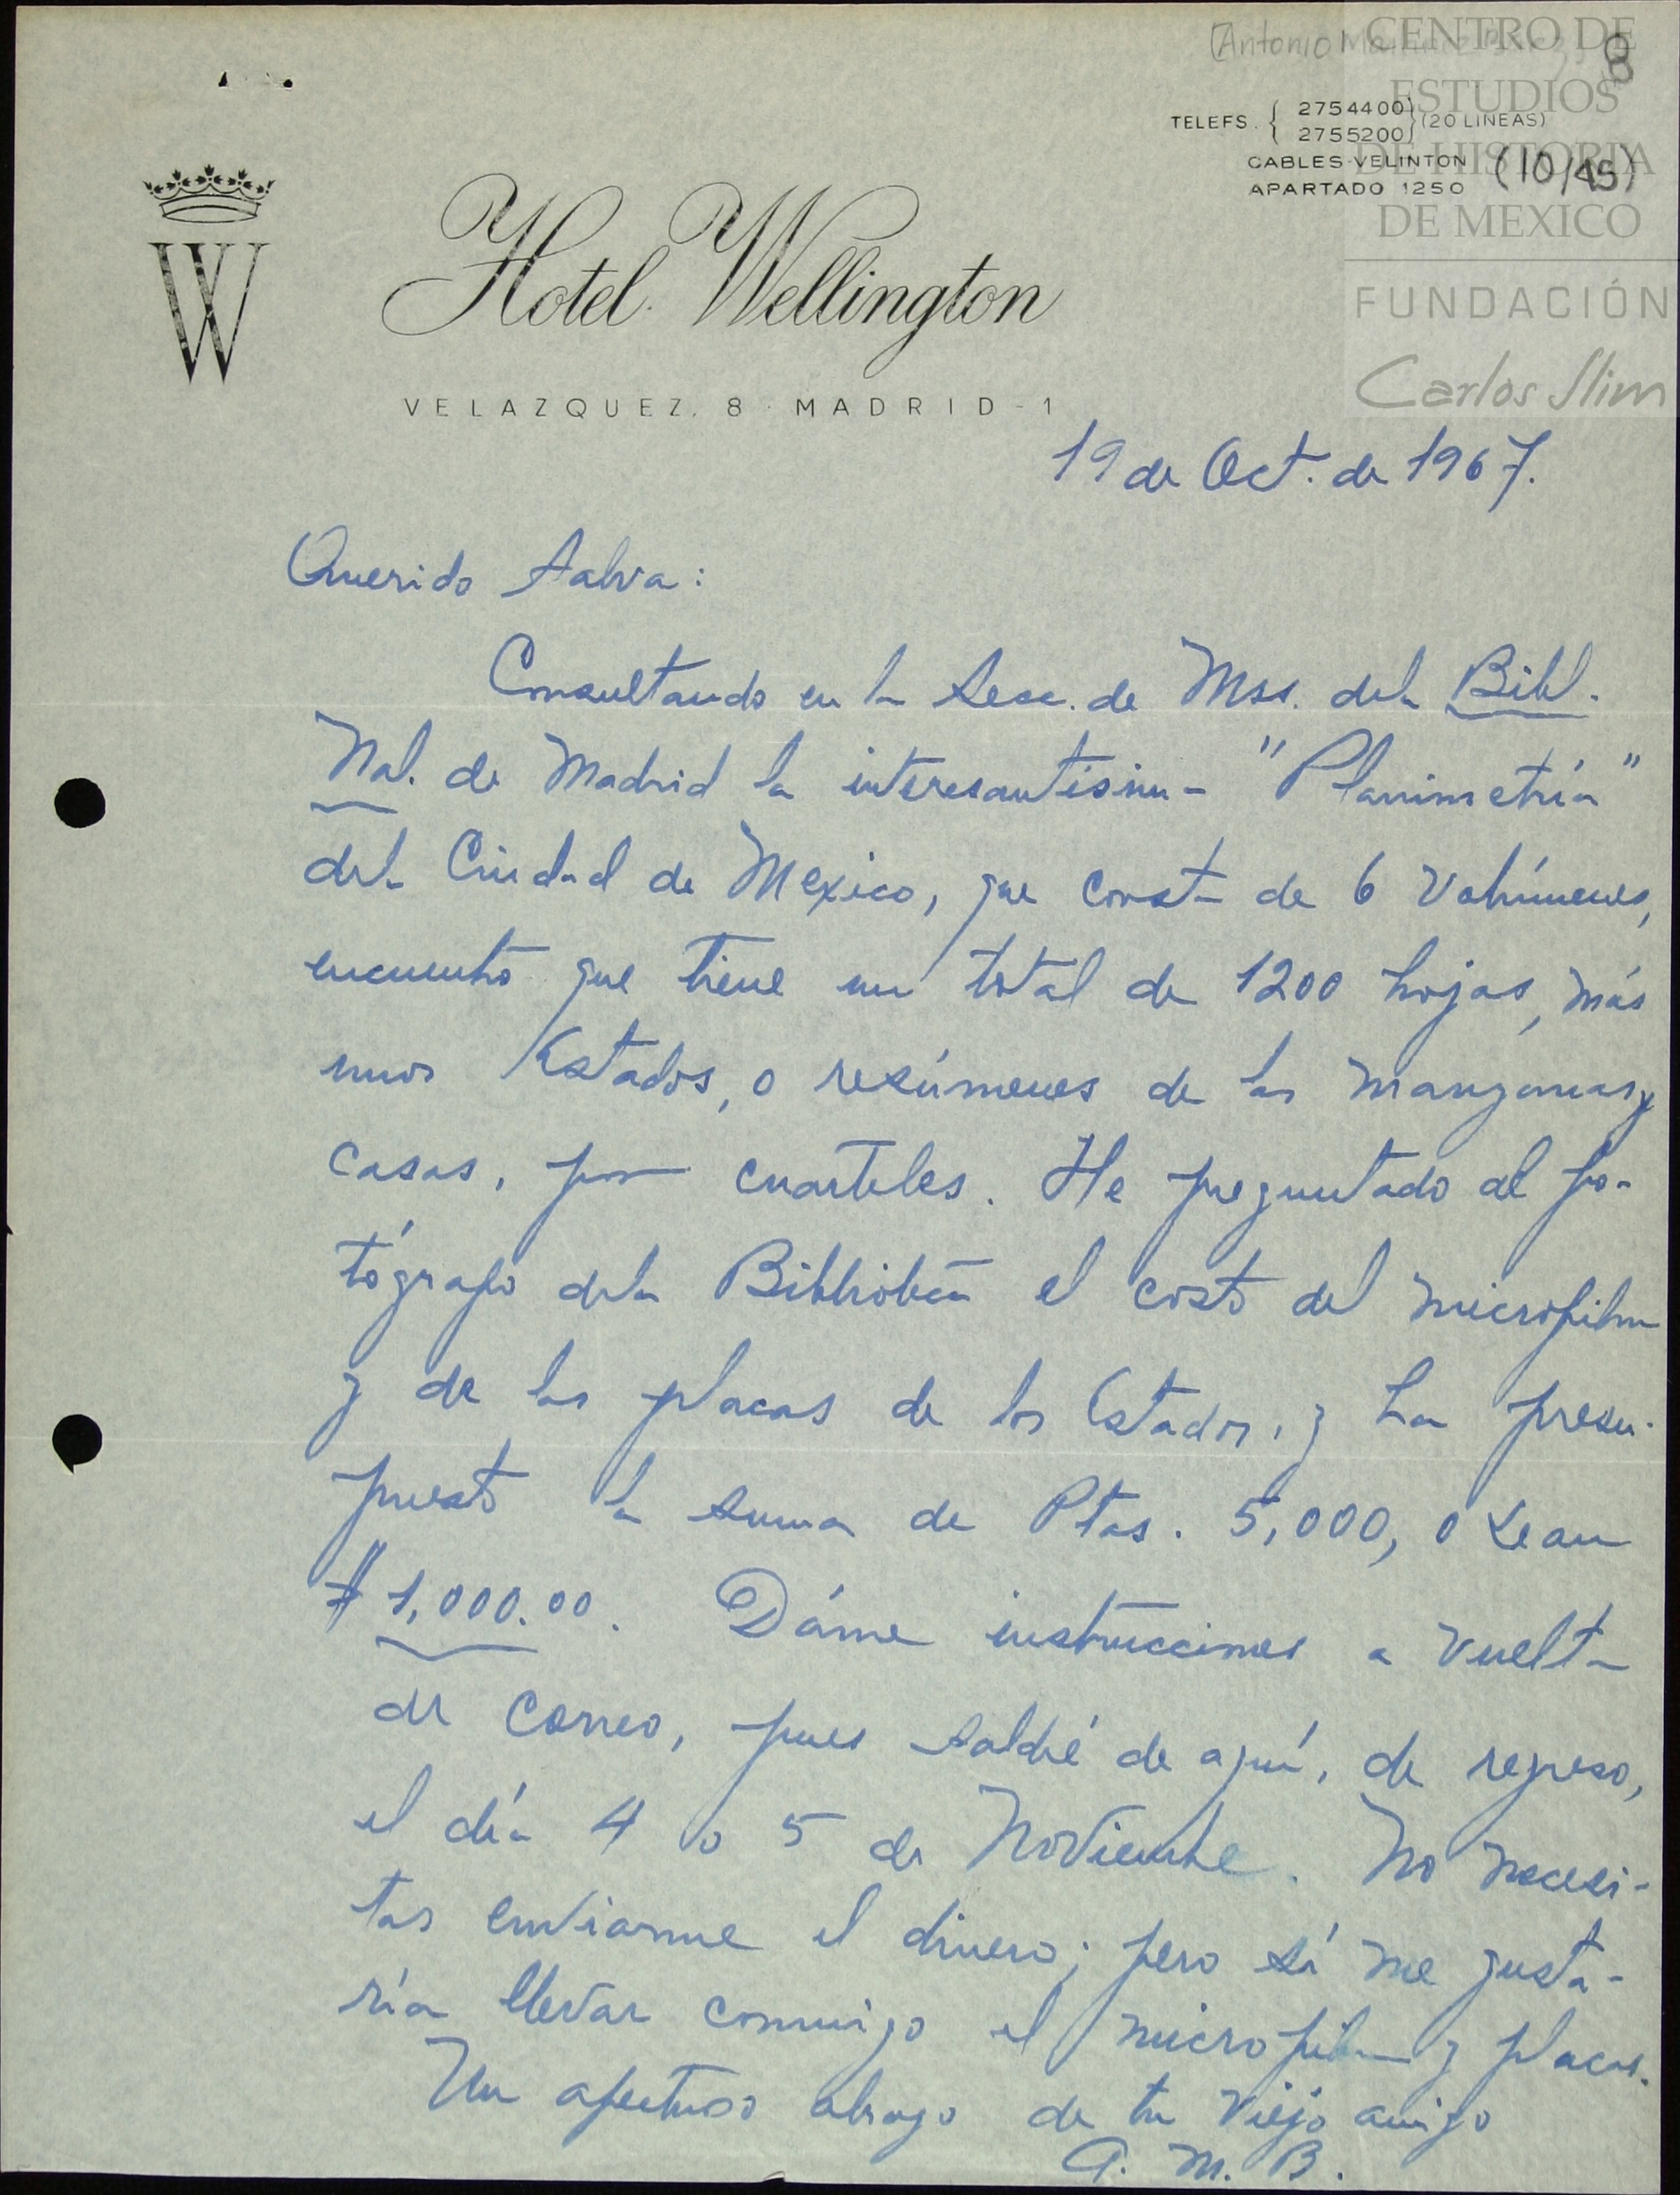 [Antonio
8
CENTRO DE
ESTUDIOS
DE HISTORIA
DE MEXICO
FUNDACIÓN
Carlos Slim
TELEFS. { 2754400 } (20 LINEAS)
2755200
CABLES VELINTON
APARTADO 1250
(10/45)
W
Hotel Wellington
VELAZQUEZ, 8 · MADRID - 1
19 de Oct. de 1967.
Querido Salva:
Consultando en la Secc. de Mss. de la Bibl.
Nal. de Madrid la interesantísima "Planimetría"
de la Ciudad de Mexico, que consta de 6 volúmenes,
encuentro que tiene un total de 1200 hojas, más
unos Estados, o resúmenes de las manzanas y
casas, por cuarteles. He preguntado al fo-
tógrafo de la Biblioteca el costo del microfilm
y de las placas de los Estados, y ha presu-
puesto la suma de Ptas. 5,000, o sean
$ 1,000.00. Dáme instrucciones a vuelta
de correo, pues saldré de aquí, de regreso,
el día 4 o 5 de Noviembre. No necesi-
tas enviarme el dinero; pero sí me gusta-
ría llevar conmigo el microfilm y placas.
Un afectuoso abrazo de tu viejo amigo
A. M. B.